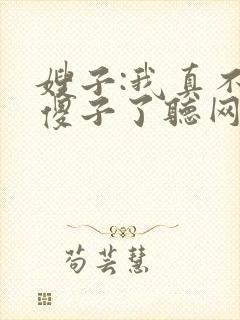 嫂子:我真不
傻子了聽网
茍芸慧